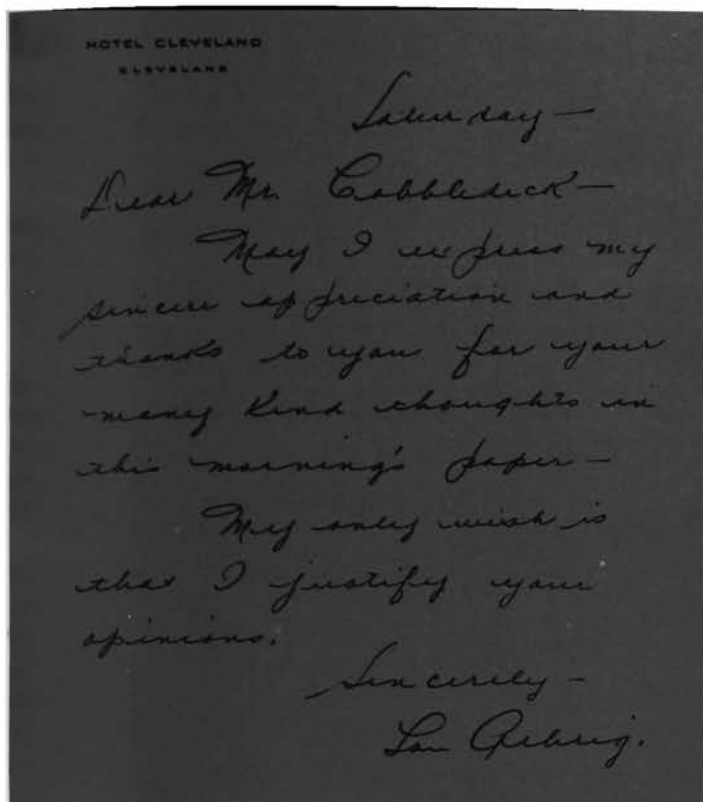 HOTEL CLEVELAND
CLEVELAND
Saturday —
Dear Mr. Cobbledick —
May I express my
sincere appreciation and
thanks to you for your
many kind thoughts in
this morning's paper —
My only wish is
that I justify your
opinions.
Sincerely —
Lou Gehrig.